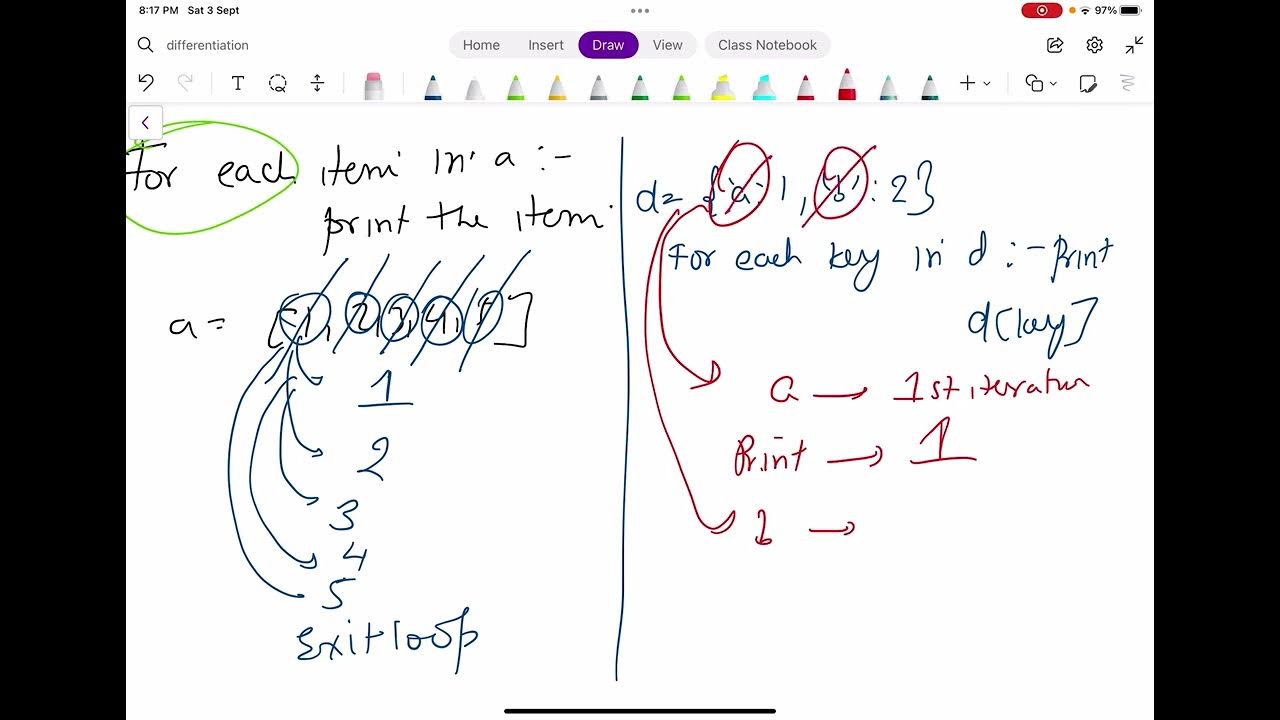 8:17 PM Sat 3 Sept
97%
differentiation
Home Insert Draw View Class Notebook
T
For each item in a :-
print the item.
a = [1, 2, 3, 4, 5]
1
2
3
4
5
Exit loop
d = {'a': 1, 'b': 2}
For each key in d :- Print
d[key]
a → 1st iteration
Print → 1
b →